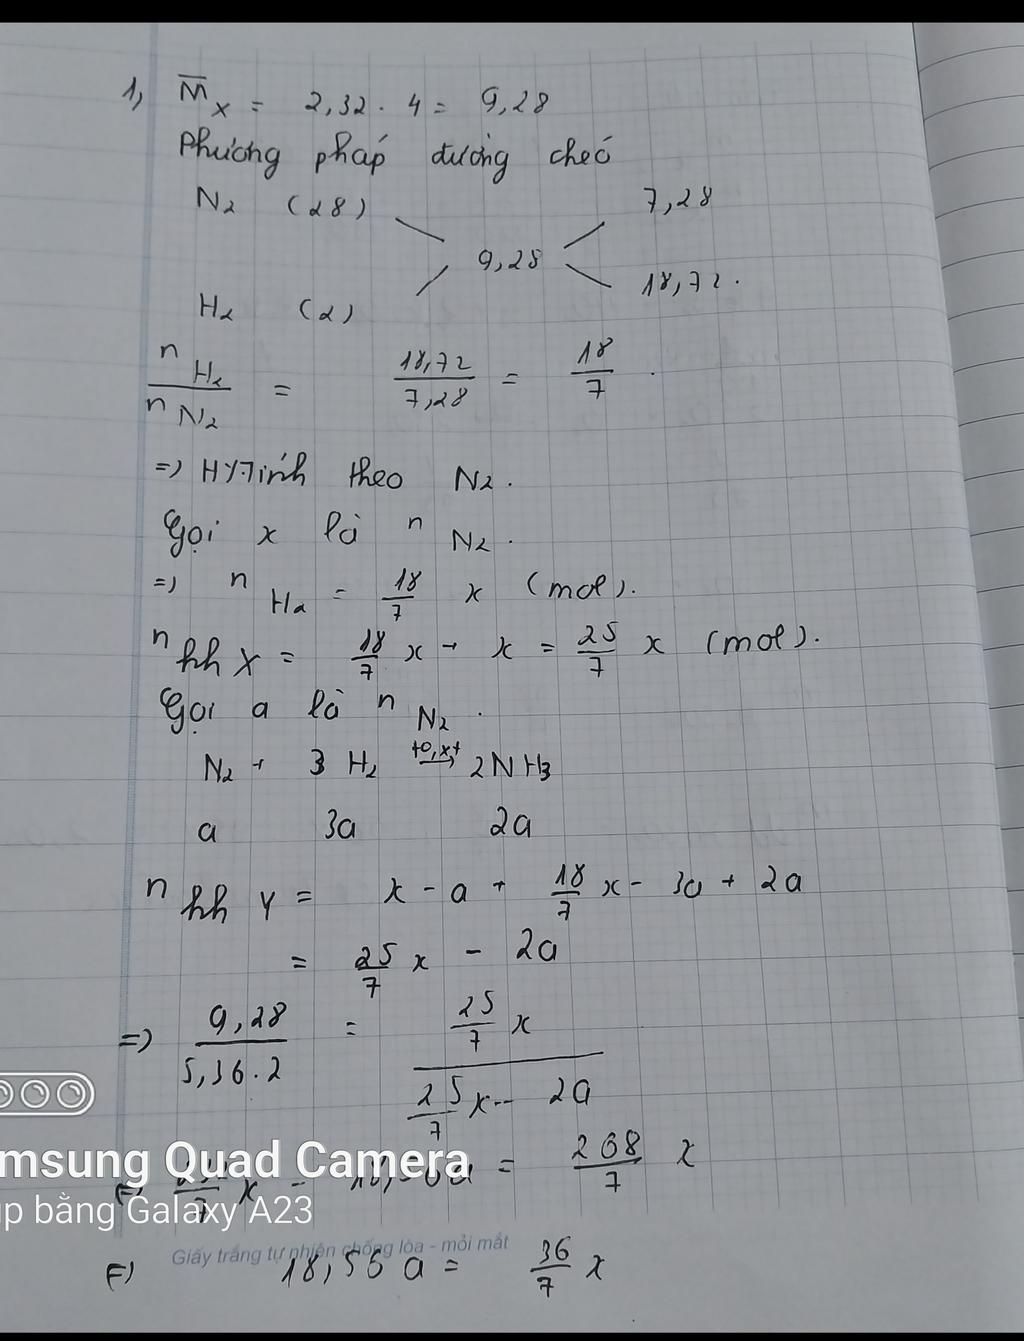 1, M̅ X = 2,32 . 4 = 9,28
Phương pháp đường chéo
N2 (28) 7,28
9,28
H2 (2) 18,72.
n H2 / n N2 = 18,72 / 7,28 = 18/7 .
=> H% tính theo N2.
Gọi x là n N2.
=> n H2 = 18/7 x (mol).
n hh X = 18/7 x + x = 25/7 x (mol).
Gọi a là n N2.
N2 + 3 H2 to,xt → 2NH3
a 3a 2a
n hh Y = x - a + 18/7 x - 3a + 2a
= 25/7 x - 2a
=> 9,28 / 5,36.2 = 25/7 x / 25/7 x - 2a
x - = 268/7 x
18,56 a = 36/7 x
Samsung Quad Camera
bằng Galaxy A23
Giấy trắng tự nhiên chống lóa - mỏi mắt